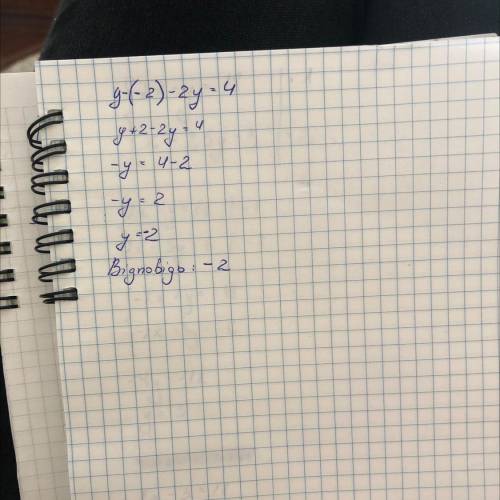 y-(-2)-2y=4
y+2-2y=4
-y=4-2
-y=2
y=-2
Відповідь: -2